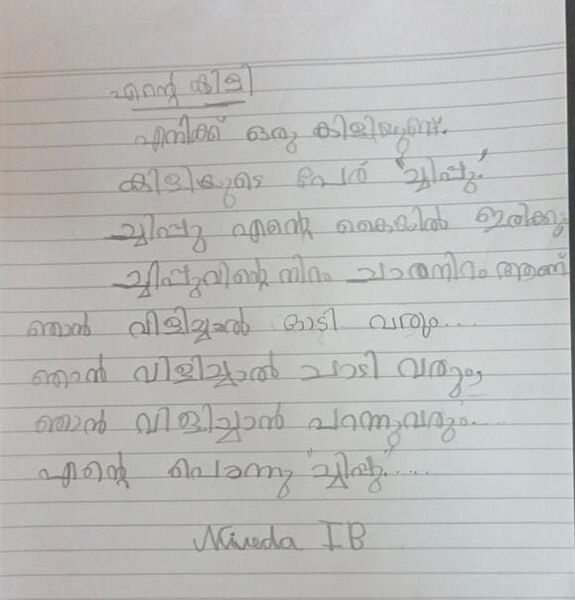 എന്റെ കിളി
എനിക്ക് ഒരു കിളിയുണ്ട്.
കിളിയുടെ പേര് "ച്ചിപ്പു."
ച്ചിപ്പു എന്റെ കൈയിൽ ഇരിക്കും
ച്ചിപ്പുവിന്റെ നിറം ചാരനിറം ആണ്
ഞാൻ വിളിച്ചാൽ ഓടി വരും....
ഞാൻ വിളിച്ചാൽ ചാടി വരും,
ഞാൻ വിളിച്ചാൽ പറന്നുവരും....
എന്റെ പൊന്നു "ച്ചിപ്പു"....
I B